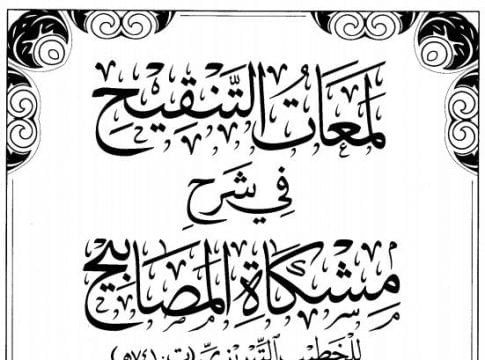 لَمَعَاتُ التَّنْقِيحِ
فِي شَرْحِ
مِشْكَاةِ الْمَصَابِيحِ
لِلْخَطِيبِ التَّبْرِيزِيِّ (ت ٧٤١ هـ)